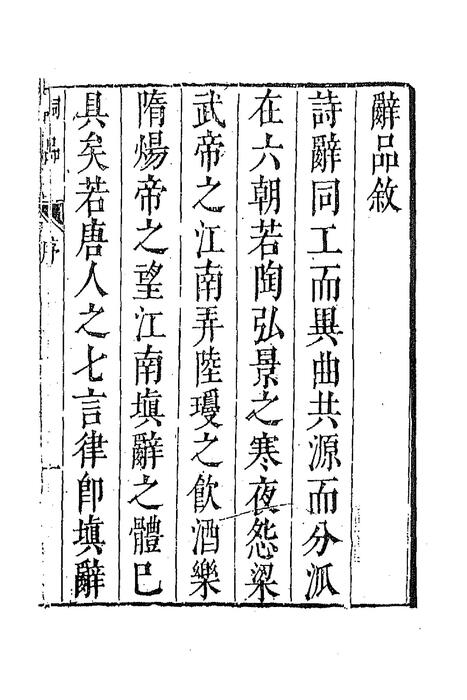 辭品敘
詩辭同工而異曲共源而分派
在六朝若陶弘景之寒夜怨梁
武帝之江南弄陸瓊之飲酒樂
隋煬帝之望江南填辭之體已
具矣若唐人之七言律即填辭
詞品 序 一